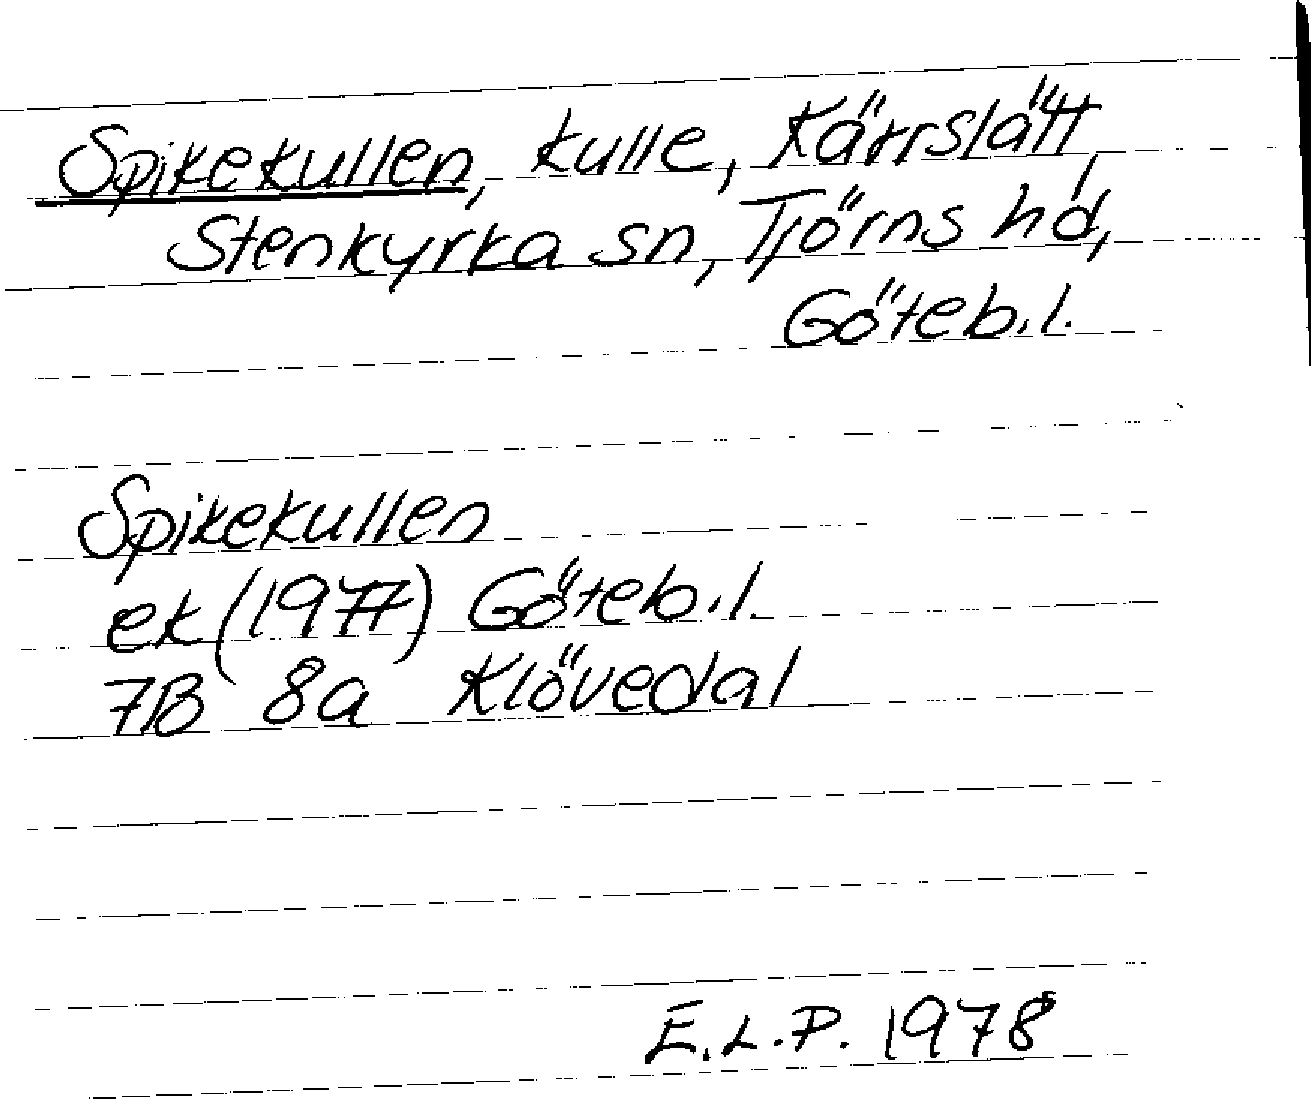 Spikekullen, kulle, Kärrslätt,
Stenkyrka sn, Tjörns hd,
Göteb.l.
Spikekullen
ek (1977) Göteb.l.
7B 8a Klövedal
E.L.P. 1978